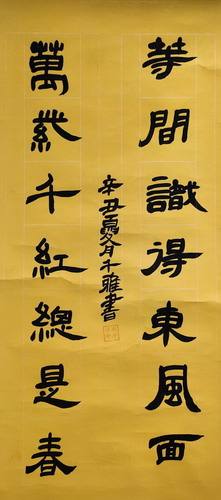 等間識得東風面
萬紫千紅總是春
辛丑夏月千雅書